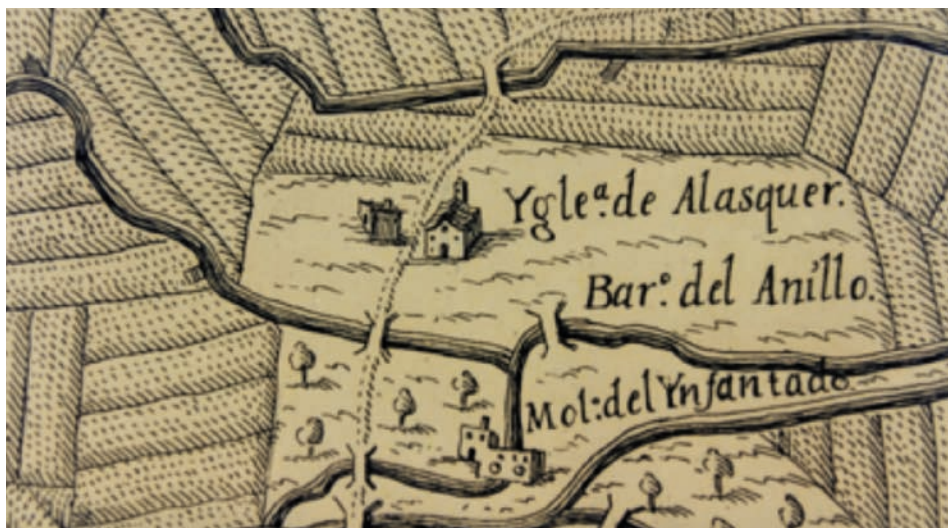 Yglea. de Alasquer.
Baro. del Anillo.
Mol: del Ynfantado